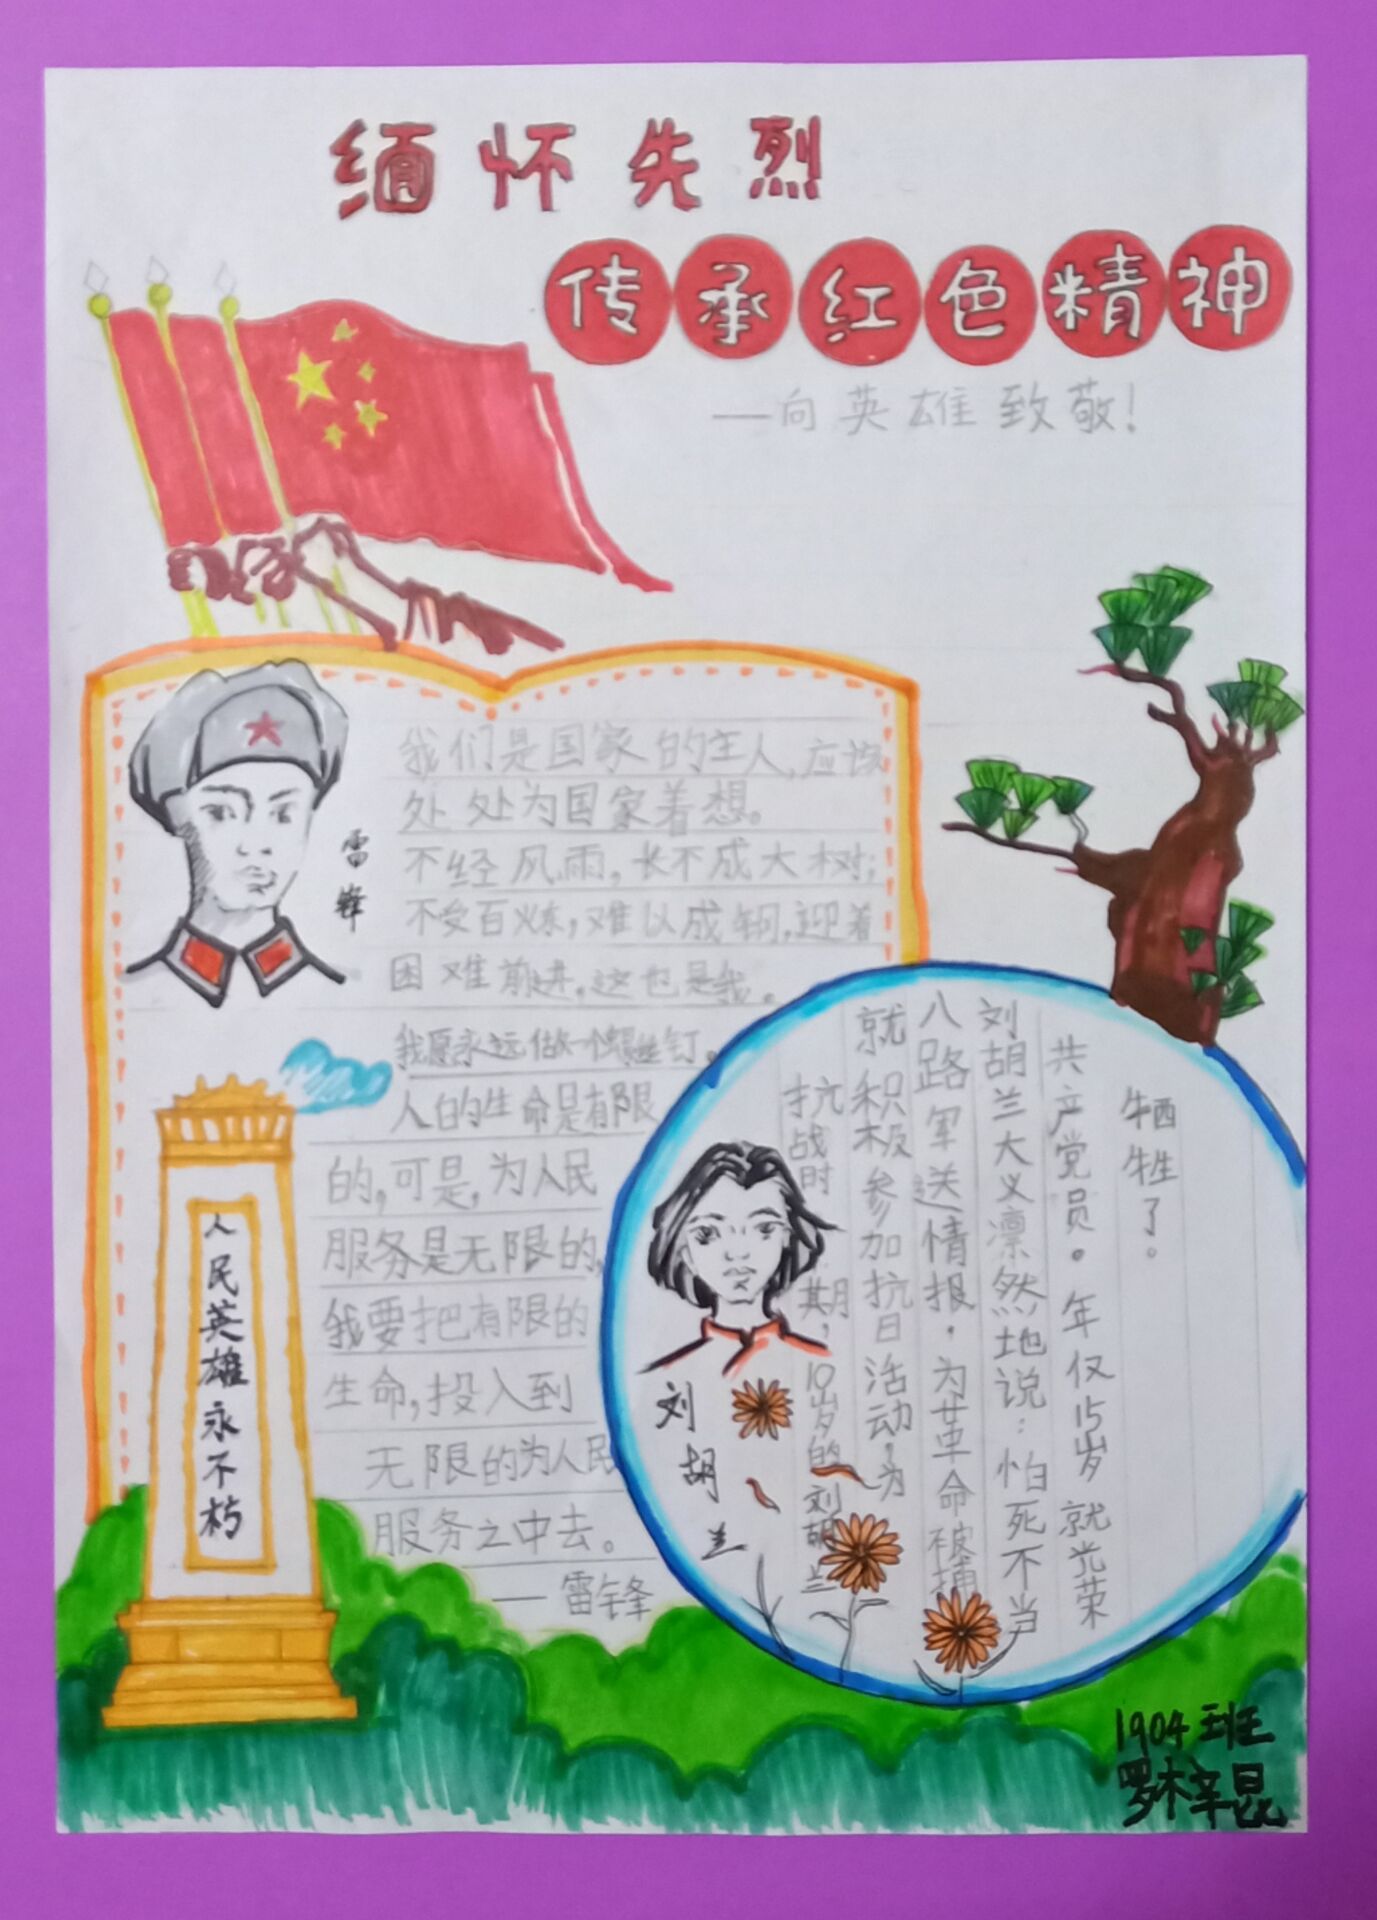 缅怀先烈
传承红色精神
——向英雄致敬！
雷锋
我们是国家的主人，应该
处处为国家着想。
不经风雨，长不成大树；
不受百炼，难以成钢，迎着
困难前进，这也是我。
我愿永远做一个螺丝钉。
人的生命是有限
的，可是，为人民
服务是无限的，
我要把有限的
生命，投入到
无限的为人民
服务之中去。
——雷锋
人民英雄永不朽
刘胡兰
抗战时期，10岁的刘胡兰
就积极参加抗日活动，为
八路军送情报，为革命被捕
刘胡兰大义凛然地说：怕死不当
共产党员。年仅15岁就光荣
牺牲了。
1904班
罗梓昆